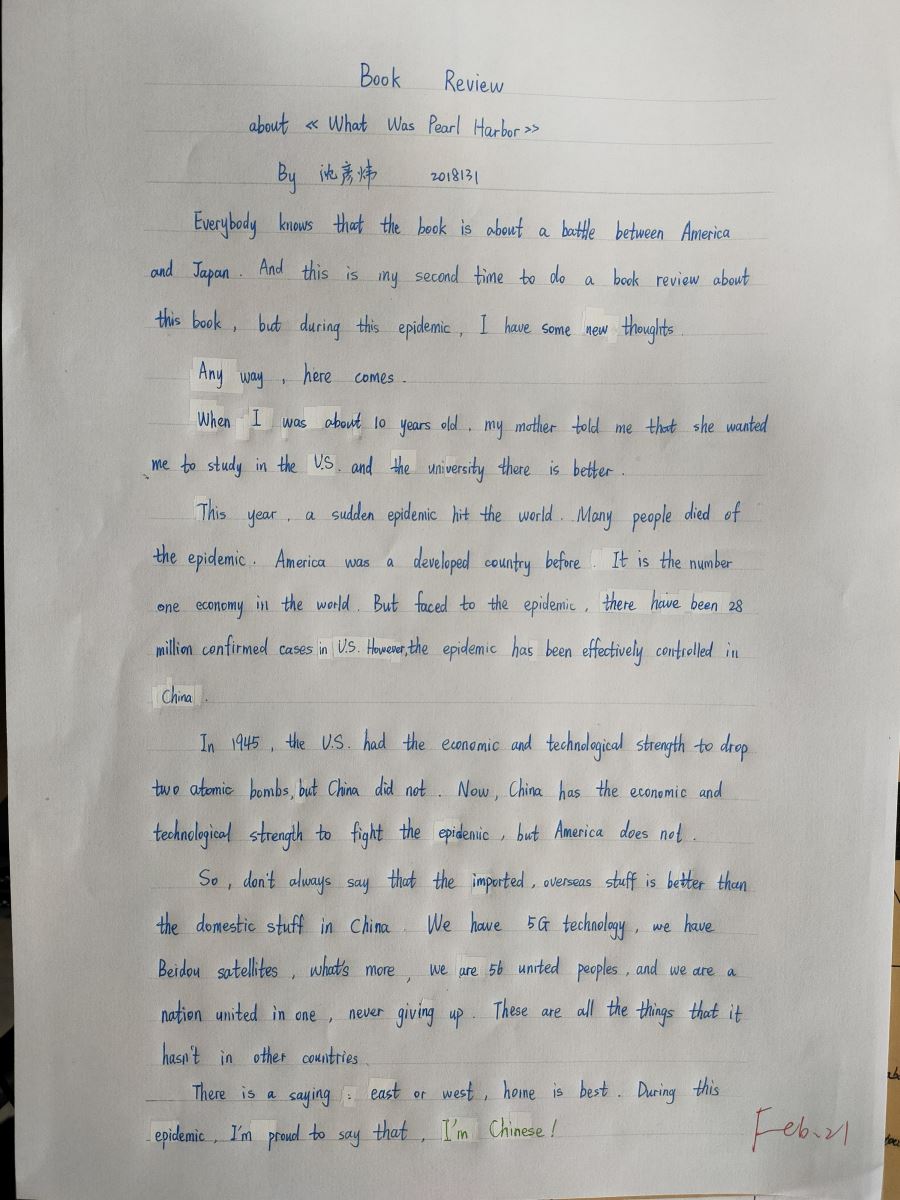 Book Review
about « What Was Pearl Harbor »
By 沈彦炜 2018131
Everybody knows that the book is about a battle between America
and Japan. And this is my second time to do a book review about
this book, but during this epidemic, I have some new thoughts.
Any way, here comes.
When I was about 10 years old, my mother told me that she wanted
me to study in the U.S. and the university there is better.
This year, a sudden epidemic hit the world. Many people died of
the epidemic. America was a developed country before. It is the number
one economy in the world. But faced to the epidemic, there have been 28
million confirmed cases in U.S. However, the epidemic has been effectively controlled in
China.
In 1945, the U.S. had the economic and technological strength to drop
two atomic bombs, but China did not. Now, China has the economic and
technological strength to fight the epidemic, but America does not.
So, don't always say that the imported, overseas stuff is better than
the domestic stuff in China. We have 5G technology, we have
Beidou satellites, what's more, we are 56 united peoples, and we are a
nation united in one, never giving up. These are all the things that it
hasn't in other countries.
There is a saying: east or west, home is best. During this
epidemic, I'm proud to say that, I'm Chinese!
Feb.21